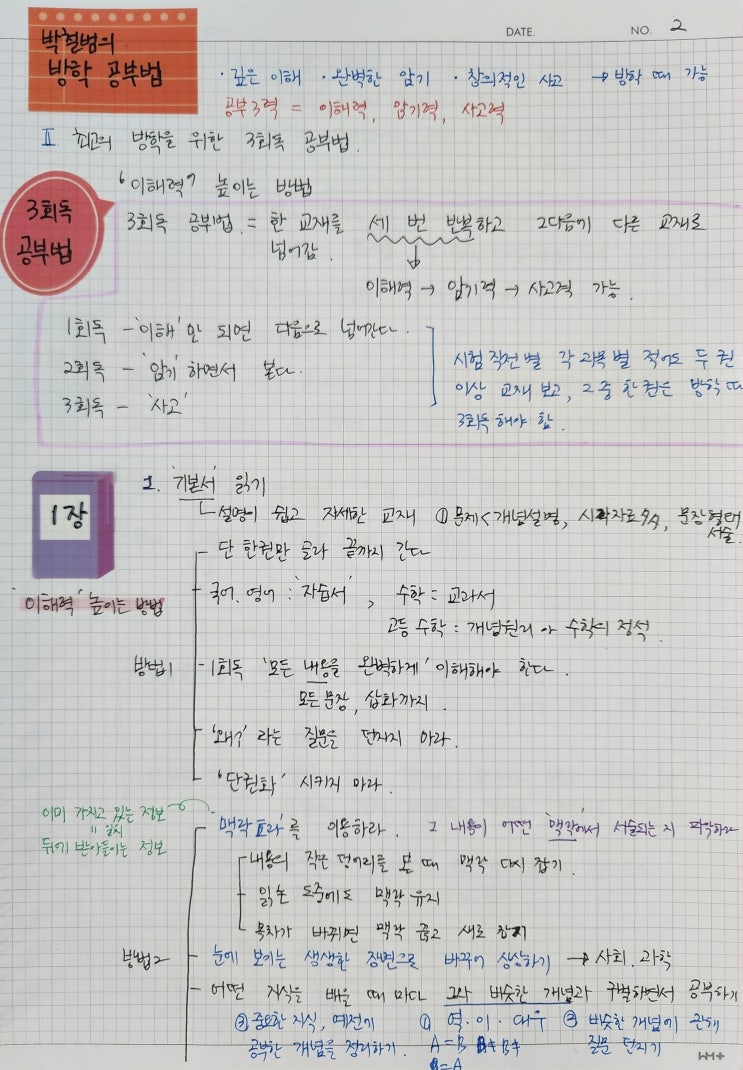 DATE. NO. 2
박철범의
방학 공부법
· 깊은 이해 · 완벽한 암기 · 창의적인 사고 → 방학 때 가능
공부 3력 = 이해력, 암기력, 사고력
Ⅱ 최고의 방학을 위한 3회독 공부법.
"이해력" 높이는 방법
3회독
공부법
3회독 공부법 = 한 교재를 세 번 반복하고 그다음에 다른 교재로
넘어감.
이해력 → 암기력 → 사고력 가능.
1회독 - '이해'만 되면 다음으로 넘어간다.
2회독 - '암기'하면서 본다.
3회독 - '사고'
시험 직전 별 각 과목별 적어도 두 권
이상 교재 보고, 그 중 한 권은 방학 때
3회독해야 함.
1장
1. '기본서' 읽기
설명이 쉽고 자세한 교재 ① 문제<개념설명, 시각자료 多, 문장형태
서술.
단 한권만 골라 끝까지 간다
'이해력' 높이는 방법
국어. 영어 : '자습서', 수학 = 교과서
고등 수학 = 개념원리 or 수학의 정석.
방법1
1회독 '모든 내용을 완벽하게' 이해해야 한다.
모든 문장, 삽화까지.
'왜?' 라는 질문을 던지지 마라.
"단권화" 시키지 마라.
이미 가지고 있는 정보
뒤에 받아들이는 정보
'맥락효과'를 이용하라. 그 내용이 어떤 '맥락'에서 서술되는 지 파악하라
내용의 작은 덩어리를 볼 때 맥락 다시 잡기.
읽는 도중에도 맥락 유지
목차가 바뀌면 맥락 끊고 새로 잡기
방법2
눈에 보이는 생생한 장면으로 바꾸어 상상하기 → 사회. 과학
어떤 지식을 배울 때 마다 그와 비슷한 개념과 구별하면서 공부하기
③ 중요한 지식, 예전에 ① 역·이·대우 ② 비슷한 개념에 관해
공부한 개념을 정리하기. A=B 질문 던지기
B=A